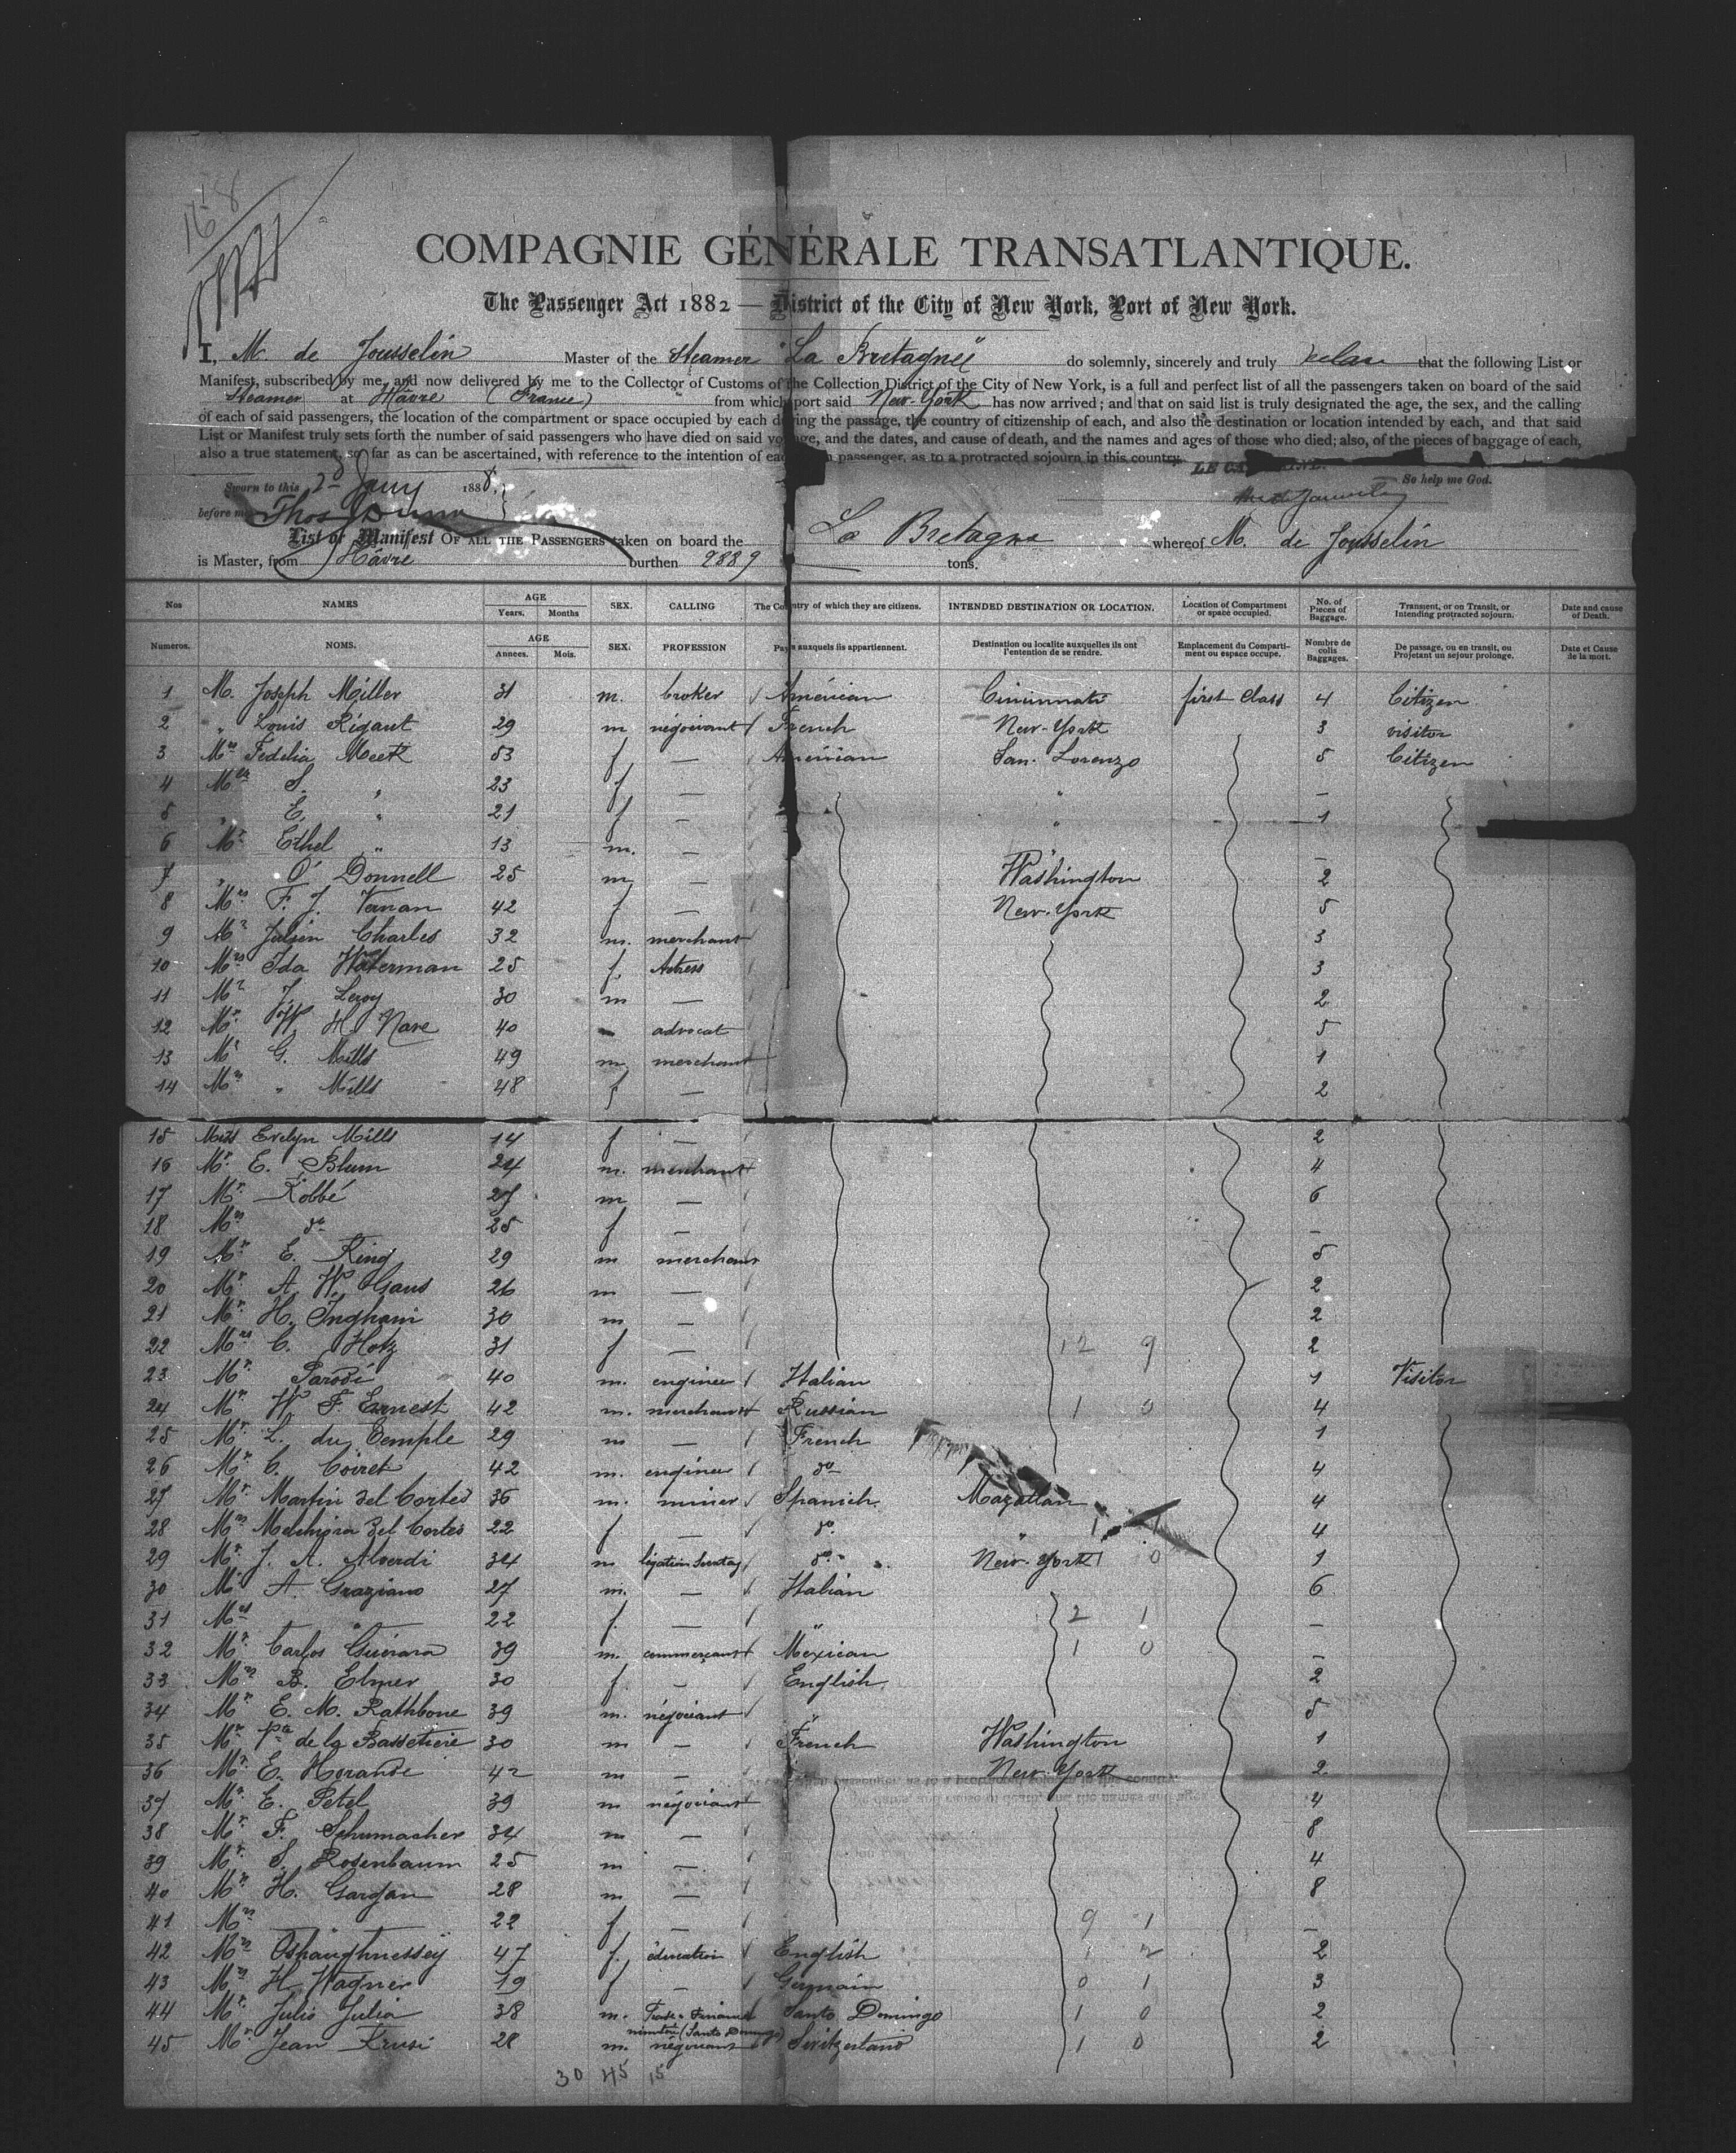 168
COMPAGNIE GÉNÉRALE TRANSATLANTIQUE.
The Passenger Act 1882 — District of the City of New York, Port of New York.
I, M. de Jousselin Master of the Steamer "La Bretagne" do solemnly, sincerely and truly that the following List or
Manifest, subscribed by me, and now delivered by me to the Collector of Customs of the Collection District of the City of New York, is a full and perfect list of all the passengers taken on board of the said
Steamer at Hâvre (France) from which port said New-York has now arrived; and that on said list is truly designated the age, the sex, and the calling
of each of said passengers, the location of the compartment or space occupied by each during the passage, the country of citizenship of each, and also the destination or location intended by each, and that said
List or Manifest truly sets forth the number of said passengers who have died on said voyage, and the dates, and cause of death, and the names and ages of those who died; also, of the pieces of baggage of each,
also a true statement, so far as can be ascertained, with reference to the intention of each passenger, as to a protracted sojourn in this country.
Sworn to this Jany 1888, So help me God.
before me Thos
List or Manifest OF ALL THE PASSENGERS taken on board the La Bretagne whereof M. de Jousselin
is Master, from Hâvre burthen 9889 tons.
Nos NAMES AGE Years. Months SEX. CALLING The Country of which they are citizens. INTENDED DESTINATION OR LOCATION. Location of Compartment or space occupied. No. of Pieces of Baggage. Transient, or on Transit, or Intending protracted sojourn. Date and cause of Death.
Numeros. NOMS. AGE Annees. Mois. SEX. PROFESSION Pays auxquels ils appartiennent. Destination ou localite auxquelles ils ont l'entention de se rendre. Emplacement du Comparti-ment ou espace occupe. Nombre de colis Baggages. De passage, ou en transit, ou Projetant un sejour prolonge. Date et Cause de la mort.
1 M. Joseph Miller 31 m. broker Américan Cincinnati first Class 4 Citizen
2 " Louis Rigaut 29 m négociant French New-York 3 visitor
3 Mrs Fidelia Meek 53 f — Américan San Lorenzo 5 Citizen
4 S. " 23 f — " —
5 " E. " 21 f — " 1
6 Mr Ethel " 13 m. — " —
7 " O'Donnell 25 m — Washington 2
8 Mrs F. J. Vernan 42 f — New-York 5
9 Mr Julien Charles 32 m. merchant 3
10 Mrs Ida Waterman 25 f. Actress 3
11 Mr J. Leroy 30 m — 2
12 Mr W. H. Nare 40 - advocat 5
13 Mr G. Mills 49 m merchant 1
14 Mrs " Mills 48 f — 2
15 Miss Evelyn Mills 14 f — 2
16 Mr E. Blum 24 m. merchant 4
17 Mr Kobbé 27 m — 6
18 Mrs do 25 f — —
19 Mr E. King 29 m merchant 5
20 Mr A. W. Gaus 26 m — 2
21 Mr H. Ingham 30 m — 2
22 Mrs C. Hotz 31 f — 12 9 2
23 Mr Parodi 40 m. engineer Italian 1 Visitor
24 Mr W. F. Earnest 42 m. merchant Russian 1 0 4
25 Mr L. du Temple 29 m — French 1
26 Mr C. Coiret 42 m. engineer do 4
27 Mr Martin del Cortes 36 m. miner Spanich. Mazatlan 4
28 Mrs Melchiora del Cortes 22 f — do. " 1 1 4
29 Mr J. A. Alverdi 34 m légation Secretary do. New-York 1 0 1
30 Mr A. Graziano 27 m. — Italian 6
31 Mrs " 22 f. — " 2 1 —
32 Mr Carlos Guérara 39 m. commerçant Méxican 1 0 —
33 Mrs B. Elmer 30 f. — English 2
34 Mr E. M. Rathbone 39 m. négociant " 5
35 Mr de la Bassetière 30 m — French Washington 1
36 Mr E. Horande 42 m — New-York 2
37 Mr E. Petel 39 m négociant 4
38 Mr F. Schumacher 34 m — 8
39 Mr S. Rosenbaum 25 m — 4
40 Mr H. Gargan 28 m — 8
41 Mrs — 22 f — 9 1 —
42 Mrs Oshaughnessey 47 f. éducation English 2 2
43 Mrs H. Wagner 19 f — Germain 0 1 3
44 Mr Julio Julia 38 m. Santo Domingo 1 0 2
(Santo Domingo)
45 Mr Jean Krusi 28 m. négociant Switzerland 1 0 2
30 45 15